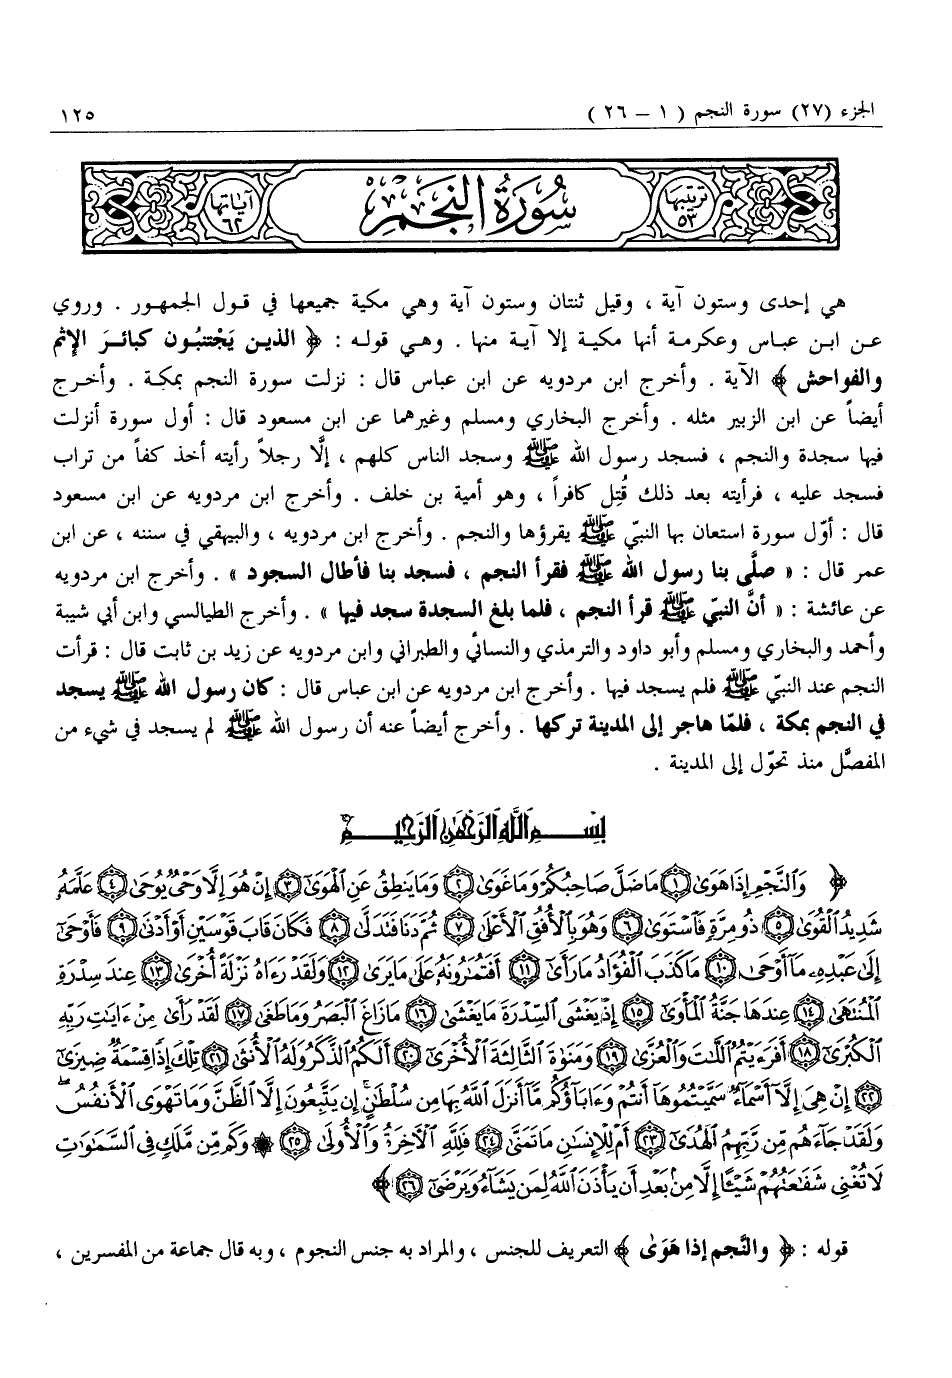 الجزء (٢٧) سورة النجم ( ١ – ٢٦ ) ١٢٥
ترتيبها ٥٣ سُورَةُ النَّجْمِ آياتها ٦٢
هي إحدى وستون آية ، وقيل ثنتان وستون آية وهي مكية جميعها في قول الجمهور . وروي
عن ابن عباس وعكرمة أنها مكية إلا آية منها . وهي قوله : ﴿ الذين يَجْتنبُون كبائرَ الإثم
والفواحش ﴾ الآية . وأخرج ابن مردويه عن ابن عباس قال : نزلت سورة النجم بمكة . وأخرج
أيضاً عن ابن الزبير مثله . وأخرج البخاري ومسلم وغيرهما عن ابن مسعود قال : أول سورة أنزلت
فيها سجدة والنجم ، فسجد رسول الله ﷺ وسجد الناس كلهم ، إلَّا رجلاً رأيته أخذ كفاً من تراب
فسجد عليه ، فرأيته بعد ذلك قُتِل كافراً ، وهو أمية بن خلف . وأخرج ابن مردويه عن ابن مسعود
قال : أوّل سورة استعان بها النبيّ ﷺ يقرؤها والنجم . وأخرج ابن مردويه ، والبيهقي في سننه ، عن ابن
عمر قال : « صلَّى بنا رسول الله ﷺ فقرأ النجم ، فسجد بنا فأطال السجود » . وأخرج ابن مردويه
عن عائشة : « أنَّ النبيّ ﷺ قرأ النجم ، فلما بلغ السجدة سجد فيها » . وأخرج الطيالسي وابن أبي شيبة
وأحمد والبخاري ومسلم وأبو داود والترمذي والنسائي والطبراني وابن مردويه عن زيد بن ثابت قال : قرأت
النجم عند النبيّ ﷺ فلم يسجد فيها . وأخرج ابن مردويه عن ابن عباس قال : كان رسول الله ﷺ يسجد
في النجم بمكة ، فلمّا هاجر إلى المدينة تركها . وأخرج أيضاً عنه أن رسول الله ﷺ لم يسجد في شيء من
المفصَّل منذ تحوّل إلى المدينة .
بِسْمِ اللَّهِ الرَّحْمَٰنِ الرَّحِيمِ
﴿ وَٱلنَّجْمِ إِذَا هَوَىٰ ١ مَا ضَلَّ صَاحِبُكُمْ وَمَا غَوَىٰ ٢ وَمَا يَنطِقُ عَنِ ٱلْهَوَىٰٓ ٣ إِنْ هُوَ إِلَّا وَحْىٌ يُوحَىٰ ٤ عَلَّمَهُۥ
شَدِيدُ ٱلْقُوَىٰ ٥ ذُو مِرَّةٍ فَٱسْتَوَىٰ ٦ وَهُوَ بِٱلْأُفُقِ ٱلْأَعْلَىٰ ٧ ثُمَّ دَنَا فَتَدَلَّىٰ ٨ فَكَانَ قَابَ قَوْسَيْنِ أَوْ أَدْنَىٰ ٩ فَأَوْحَىٰٓ
إِلَىٰ عَبْدِهِۦ مَآ أَوْحَىٰ ١٠ مَا كَذَبَ ٱلْفُؤَادُ مَا رَأَىٰٓ ١١ أَفَتُمَٰرُونَهُۥ عَلَىٰ مَا يَرَىٰ ١٢ وَلَقَدْ رَءَاهُ نَزْلَةً أُخْرَىٰ ١٣ عِندَ سِدْرَةِ
ٱلْمُنتَهَىٰ ١٤ عِندَهَا جَنَّةُ ٱلْمَأْوَىٰٓ ١٥ إِذْ يَغْشَى ٱلسِّدْرَةَ مَا يَغْشَىٰ ١٦ مَا زَاغَ ٱلْبَصَرُ وَمَا طَغَىٰ ١٧ لَقَدْ رَأَىٰ مِنْ ءَايَٰتِ رَبِّهِ
ٱلْكُبْرَىٰٓ ١٨ أَفَرَءَيْتُمُ ٱللَّٰتَ وَٱلْعُزَّىٰ ١٩ وَمَنَوٰةَ ٱلثَّالِثَةَ ٱلْأُخْرَىٰٓ ٢٠ أَلَكُمُ ٱلذَّكَرُ وَلَهُ ٱلْأُنثَىٰ ٢١ تِلْكَ إِذًا قِسْمَةٌ ضِيزَىٰٓ
٢٢ إِنْ هِىَ إِلَّآ أَسْمَآءٌ سَمَّيْتُمُوهَآ أَنتُمْ وَءَابَآؤُكُم مَّآ أَنزَلَ ٱللَّهُ بِهَا مِن سُلْطَٰنٍ إِن يَتَّبِعُونَ إِلَّا ٱلظَّنَّ وَمَا تَهْوَى ٱلْأَنفُسُ ۖ
وَلَقَدْ جَآءَهُم مِّن رَّبِّهِمُ ٱلْهُدَىٰٓ ٢٣ أَمْ لِلْإِنسَٰنِ مَا تَمَنَّىٰ ٢٤ فَلِلَّهِ ٱلْأَخِرَةُ وَٱلْأُولَىٰ ٢٥ ۞ وَكَم مِّن مَّلَكٍ فِى ٱلسَّمَٰوَٰتِ
لَا تُغْنِى شَفَٰعَتُهُمْ شَيْـًٔا إِلَّا مِنۢ بَعْدِ أَن يَأْذَنَ ٱللَّهُ لِمَن يَشَآءُ وَيَرْضَىٰٓ ٢٦ ﴾
قوله : ﴿ والنَّجم إذا هَوَىٰ ﴾ التعريف للجنس ، والمراد به جنس النجوم ، وبه قال جماعة من المفسرين ،